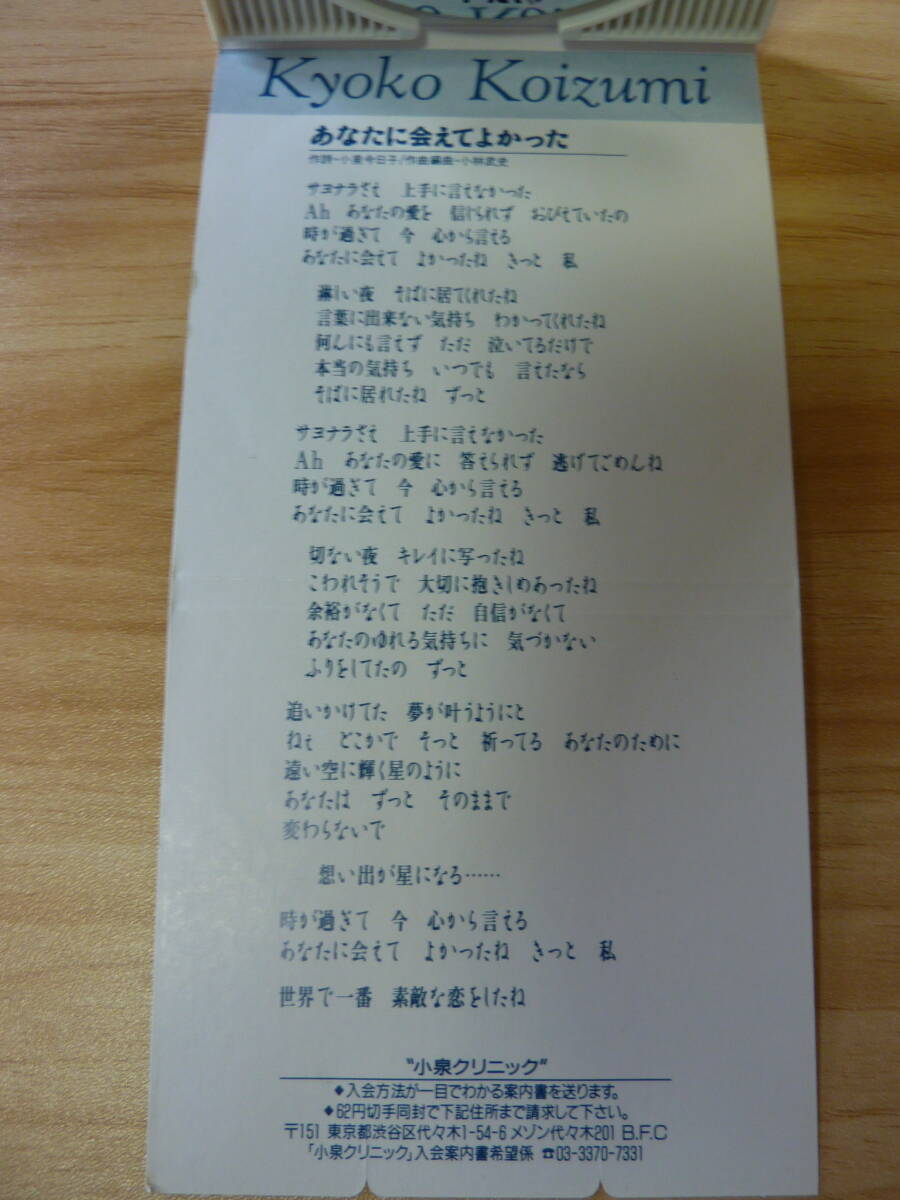 Kyoko Koizumi
あなたに会えてよかった
作詩-小泉今日子/作曲編曲-小林武史
サヨナラさえ 上手に言えなかった
Ah あなたの愛を 信じられず おびえていたの
時が過ぎて 今 心から言える
あなたに会えて よかったね きっと 私
淋しい夜 そばに居てくれたね
言葉に出来ない気持ち わかってくれたね
何んにも言えず ただ 泣いてるだけで
本当の気持ち いつでも 言えたなら
そばに居れたね ずっと
サヨナラさえ 上手に言えなかった
Ah あなたの愛に 答えられず 逃げてごめんね
時が過ぎて 今 心から言える
あなたに会えて よかったね きっと 私
切ない夜 キレイに写ったね
こわれそうで 大切に抱きしめあったね
余裕がなくて ただ 自信がなくて
あなたのゆれる気持ちに 気づかない
ふりをしてたの ずっと
追いかけてた 夢が叶うようにと
ねぇ どこかで そっと 祈ってる あなたのために
遠い空に輝く星のように
あなたは ずっと そのままで
変わらないで
想い出が星になる……
時が過ぎて 今 心から言える
あなたに会えて よかったね きっと 私
世界で一番 素敵な恋をしたね
"小泉クリニック"
◆入会方法が一目でわかる案内書を送ります。
◆62円切手同封で下記住所まで請求して下さい。
〒151 東京都渋谷区代々木1-54-6 メゾン代々木201 B.F.C
「小泉クリニック」入会案内書希望係 ☎03-3370-7331